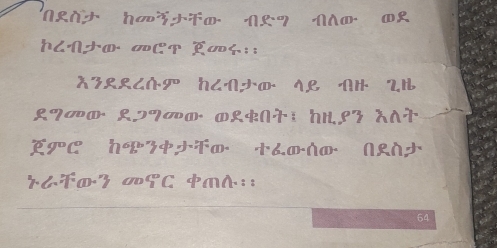 በደስታ ከመኝታቸው ብድግ ብለው ወደ
ኮረብታው መሮጥ ጀመሩ፡፡
እንደደረሱም ከረብታው ላይ ብዙ ጊዜ
ደግመው ደጋግመው ወደቁበት፤ ከዚያን እለት
ጀምሮ ከጭንቀታቸው ተፈውሰው በደስታ
ኑራቸውን መኖር ቀጠሉ፡፡
64